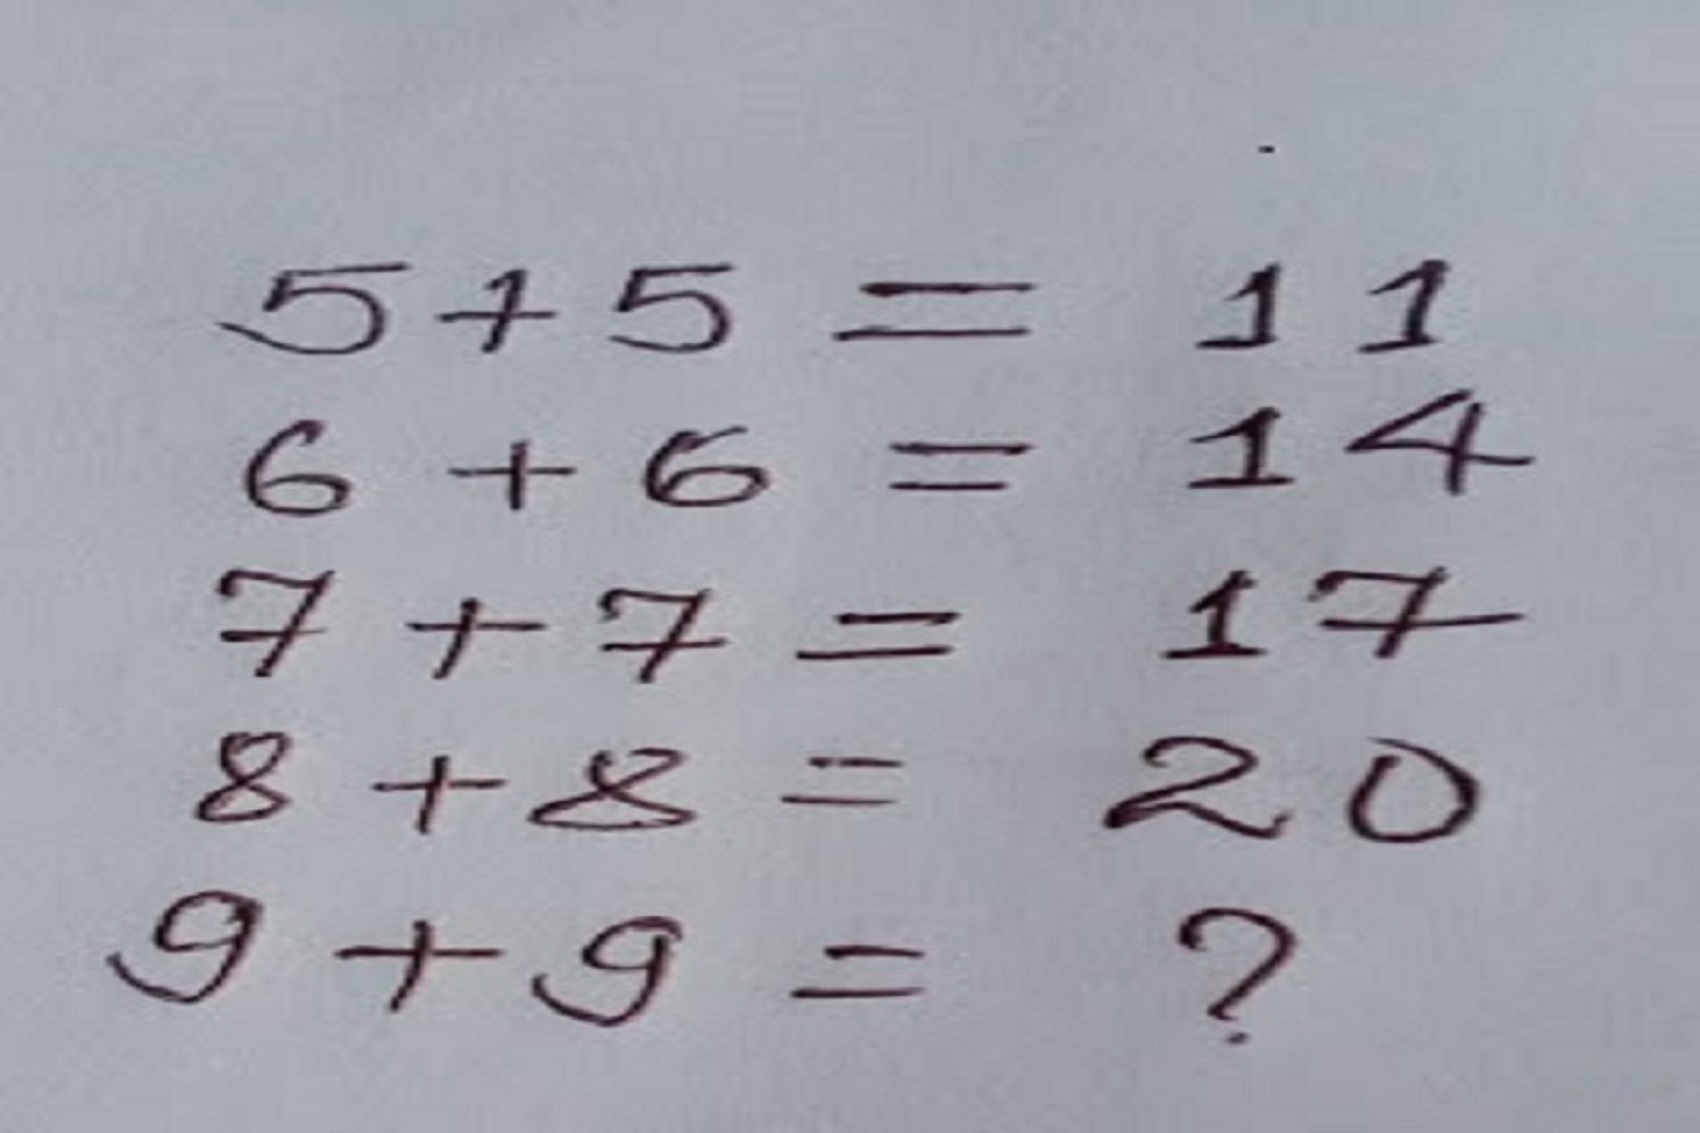 5+5 = 11
6 + 6 = 14
7 + 7 = 17
8 + 8 = 20
9 + 9 = ?